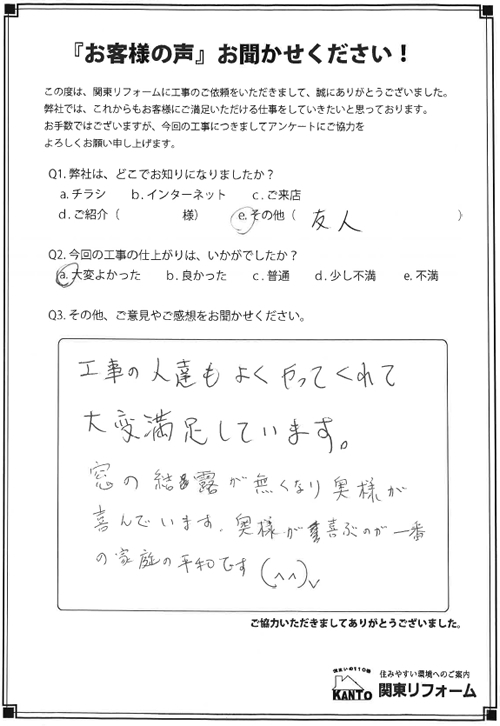 『お客様の声』お聞かせください！
この度は、関東リフォームに工事のご依頼をいただきまして、誠にありがとうございました。
弊社では、これからもお客様にご満足いただける仕事をしていきたいと思っております。
お手数ではございますが、今回の工事につきましてアンケートにご協力を
よろしくお願い申し上げます。
Q1. 弊社は、どこでお知りになりましたか？
a. チラシ　b. インターネット　c. ご来店
d. ご紹介（　　　　様）　e. その他（ 友人 ）
Q2. 今回の工事の仕上がりは、いかがでしたか？
a. 大変よかった　b. 良かった　c. 普通　d. 少し不満　e. 不満
Q3. その他、ご意見やご感想をお聞かせください。
工事の人達もよくやってくれて
大変満足しています。
窓の結露が無くなり奥様が
喜んでいます。奥様が喜ぶのが一番
の家庭の平和です(^^)v
ご協力いただきましてありがとうございました。
住まいの110番
KANTO
住みやすい環境へのご案内
関東リフォーム